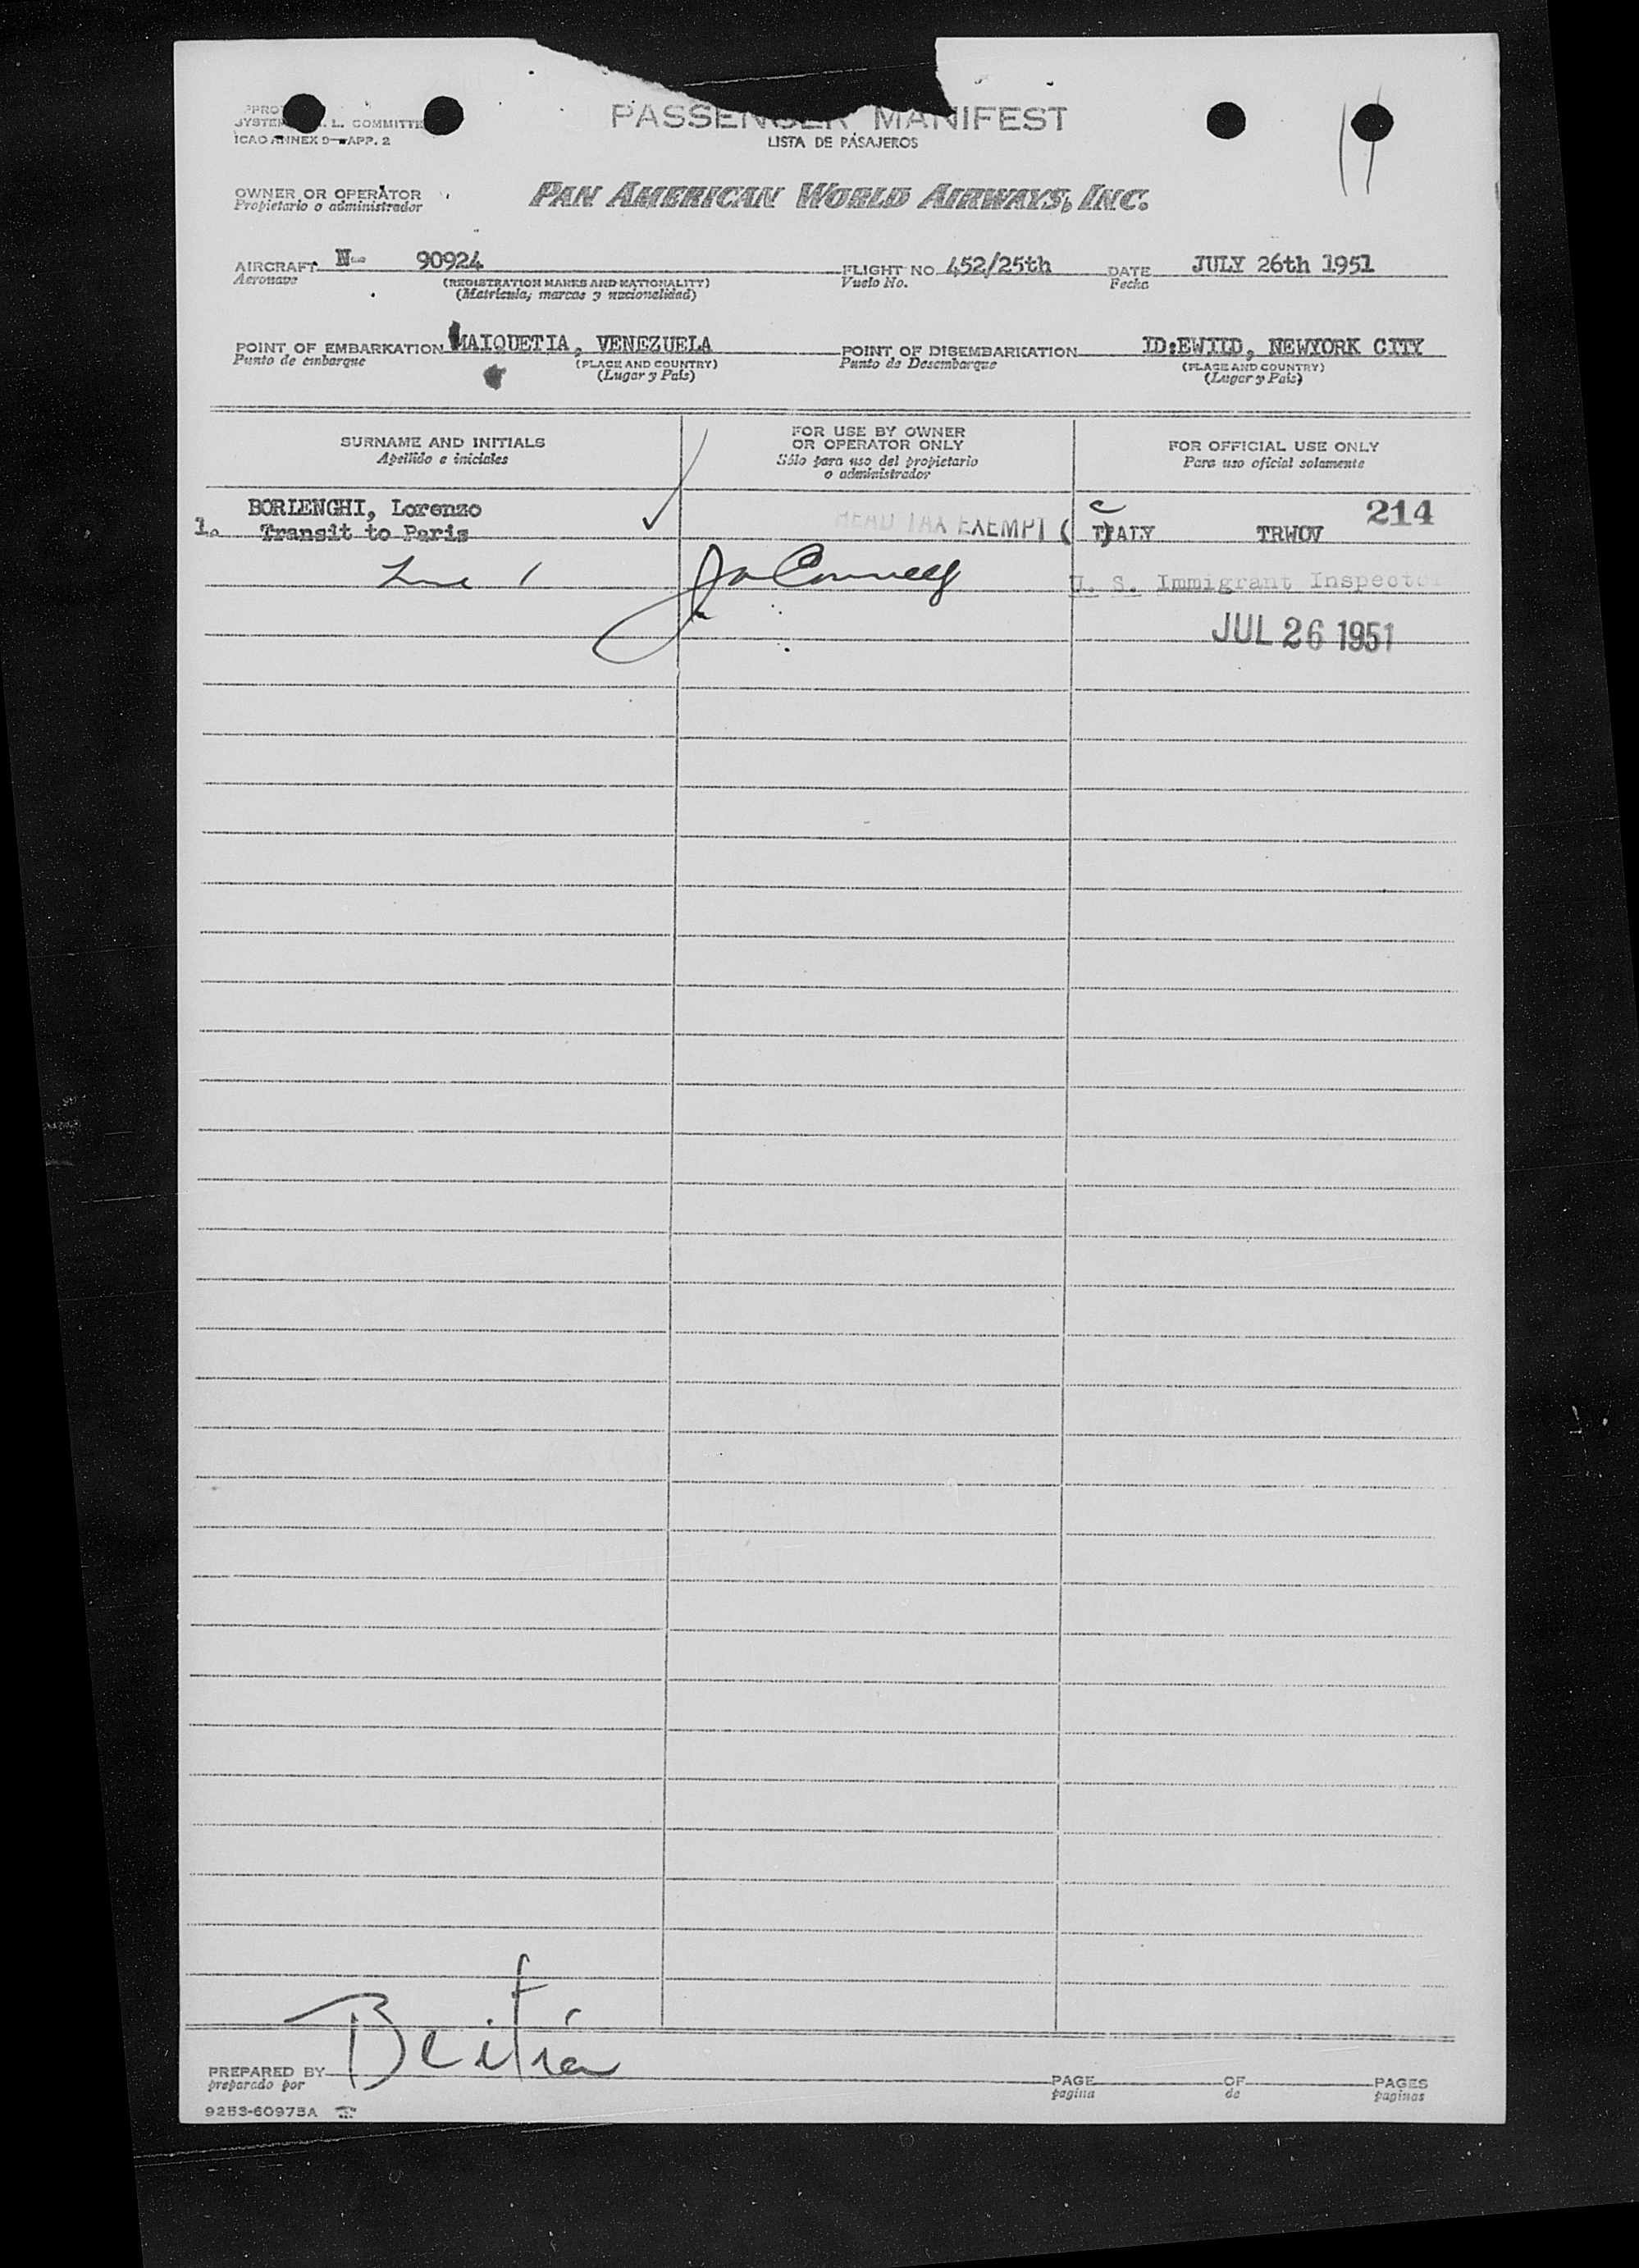 PASSENGER MANIFEST
LISTA DE PASAJEROS
L. COMMITTE
ICAO ANNEX 9—APP. 2
OWNER OR OPERATOR PAN AMERICAN WORLD AIRWAYS, INC.
Propietario o administrador
AIRCRAFT N- 90924 FLIGHT NO. 452/25th DATE JULY 26th 1951
Aeronave (REGISTRATION MARKS AND NATIONALITY) Vuelo No. Fecha
(Matrícula, marcas y nacionalidad)
POINT OF EMBARKATION MAIQUETIA, VENEZUELA POINT OF DISEMBARKATION ID:EWILD, NEWYORK CITY
Punto de embarque (PLACE AND COUNTRY) Punto de Desembarque (PLACE AND COUNTRY)
(Lugar y País) (Lugar y País)
SURNAME AND INITIALS FOR USE BY OWNER OR OPERATOR ONLY FOR OFFICIAL USE ONLY
Apellido e iniciales Sólo para uso del propietario o administrador Para uso oficial solamente
BORLENGHI, Lorenzo 214
1. Transit to Paris HEAD TAX EXEMPT ( ITALY TRWOV
Line 1 U. S. Immigrant Inspector
JUL 26 1951
PREPARED BY Beitia PAGE OF PAGES
preparado por pagina de paginas
9253-60975A